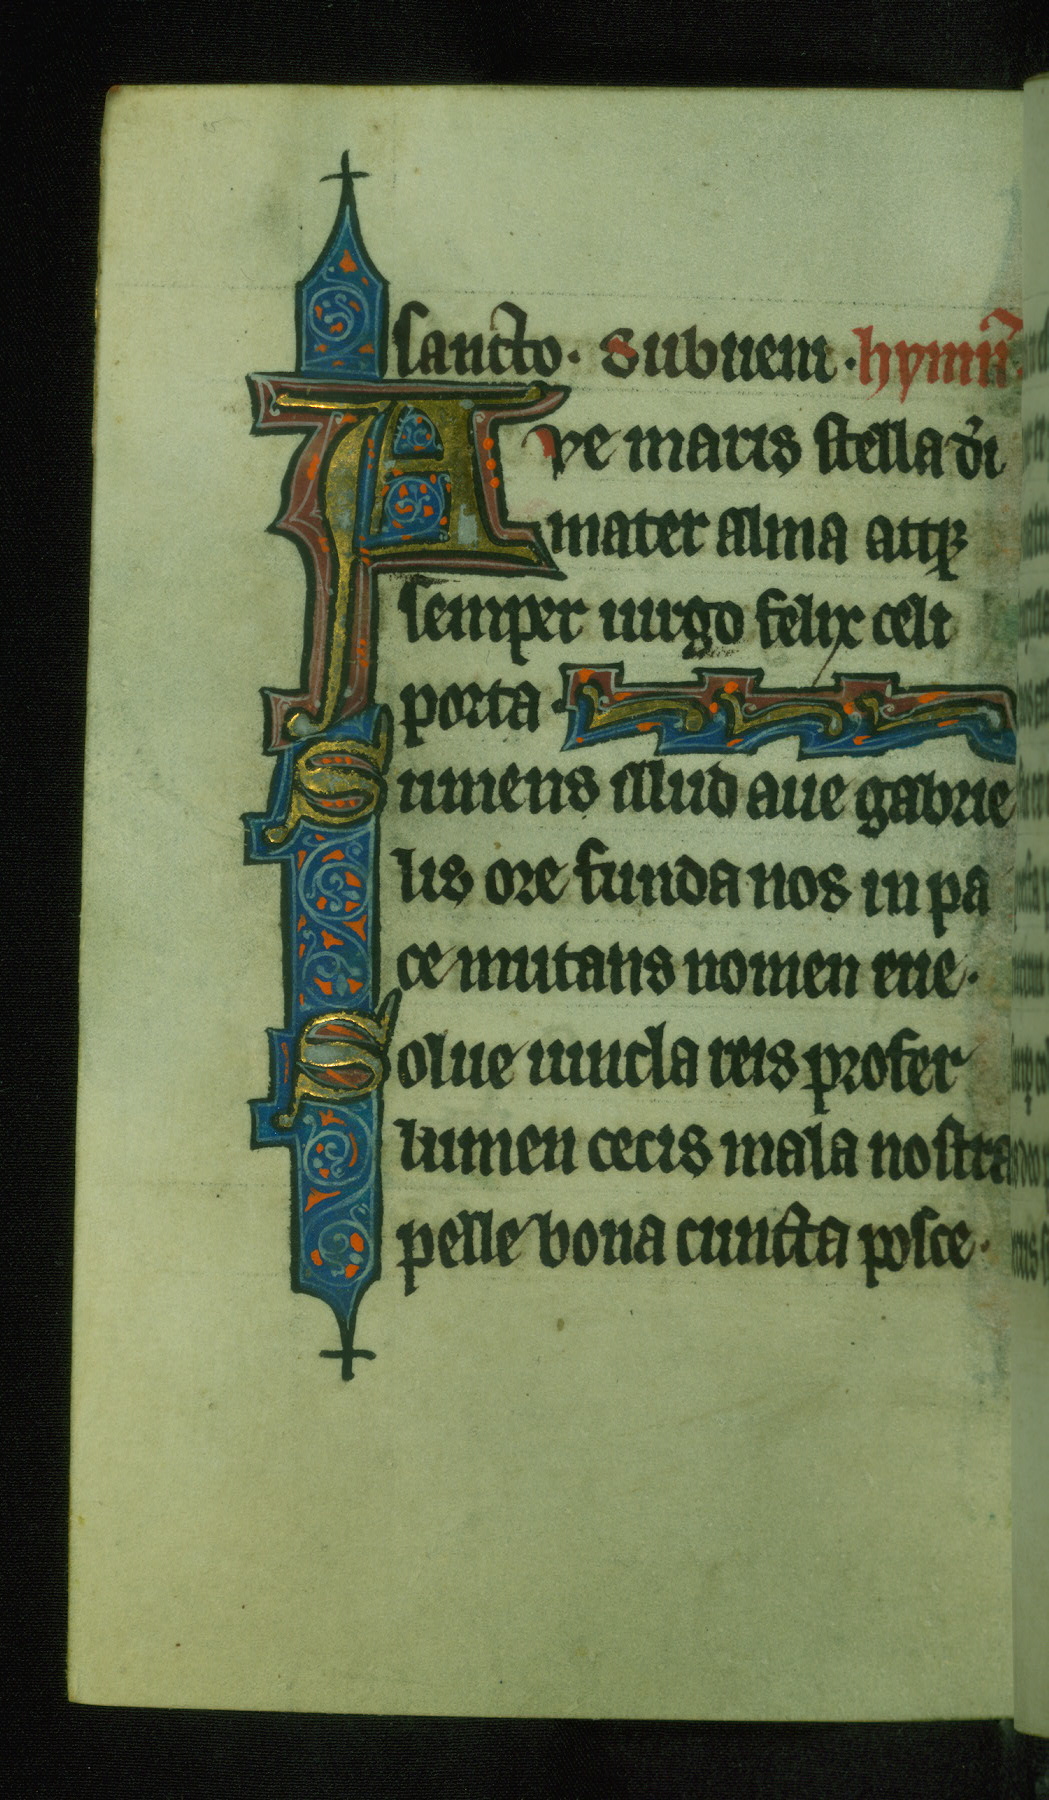 sancto. Subueni. hymñ.
Ave maris stella dī
mater alma atqꝫ
semper uirgo felix celi
porta.
Sumens illud aue gabrie
lis ore funda nos in pa
ce mutans nomen eue.
Solue uincla reis profer
lumen cecis mala nostra
pelle bona cuncta posce.